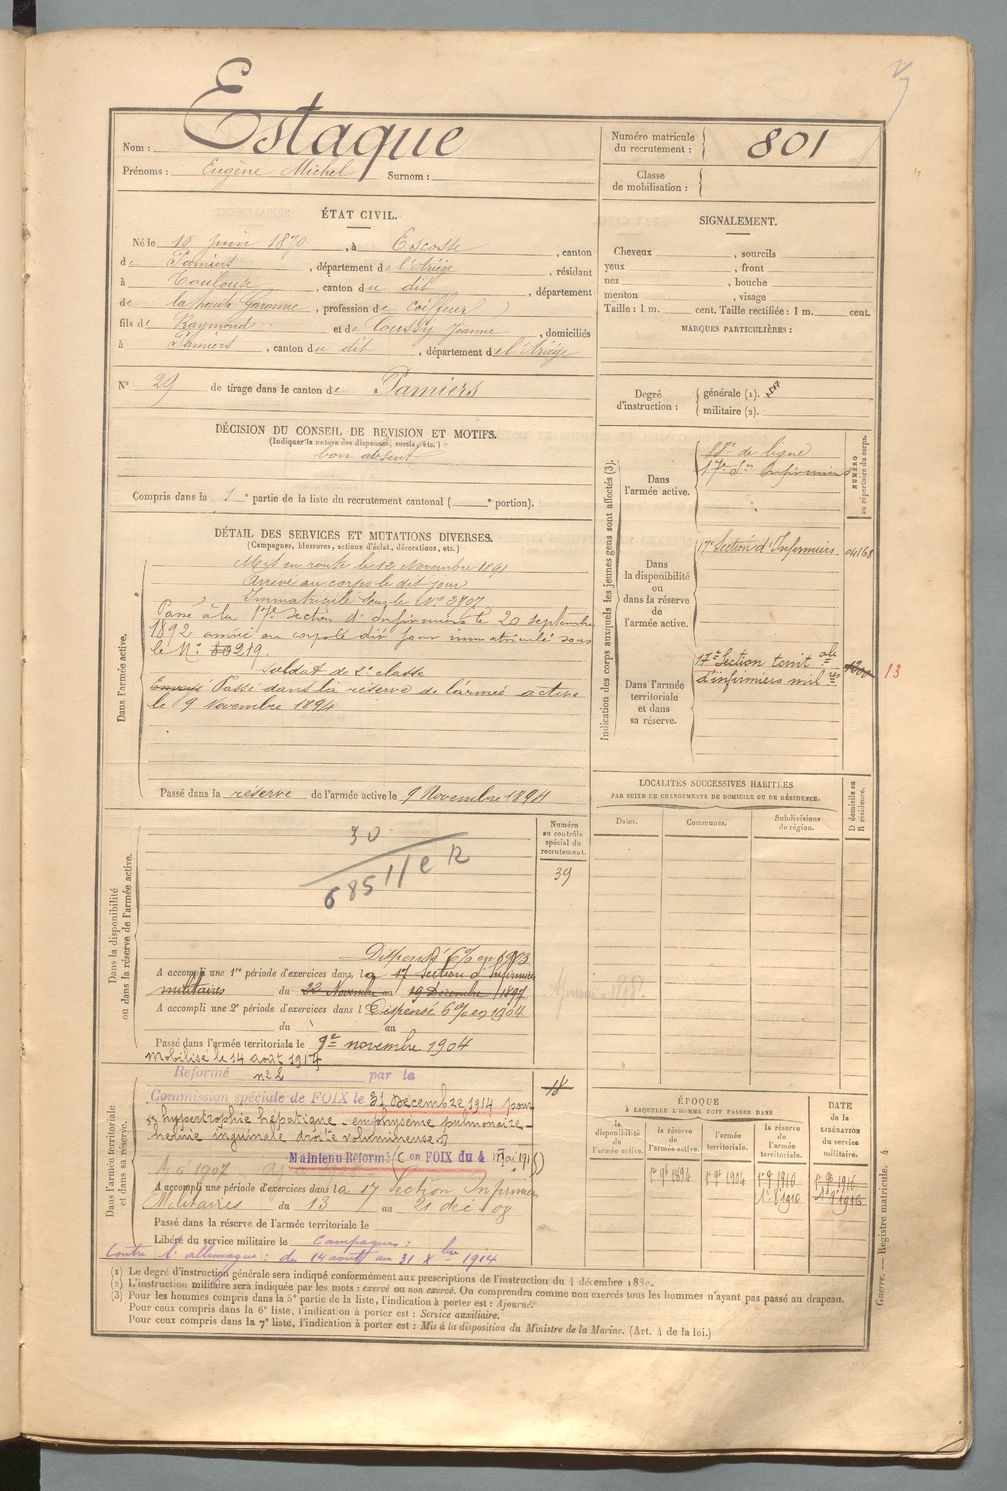 Nom : Estaque
Prénoms : Eugène Michel Surnom :
Numéro matricule du recrutement : 801
Classe de mobilisation :
ÉTAT CIVIL.
Né le 10 Juin 1870, à Escosse, canton
de Pamiers, département de l'Ariège, résidant
à Toulouse, canton du dit, département
de la haute Garonne, profession de coiffeur
fils de Raymond et de Toussy Jeanne, domiciliés
à Pamiers, canton du dit, département de l'Ariège
N° 29 de tirage dans le canton de Pamiers
DÉCISION DU CONSEIL DE REVISION ET MOTIFS.
(Indiquer la nature des dispenses, sursis, etc.)
bon absent
Compris dans la 1e partie de la liste du recrutement cantonal ( e portion).
DÉTAIL DES SERVICES ET MUTATIONS DIVERSES.
(Campagnes, blessures, actions d'éclat, décorations, etc.)
Dans l'armée active.
Mis en route le 12 Novembre 1891
Arrivé au corps le dit jour
Immatriculé sous le N° 3807
Passé à la 17e section d'infirmiers le 20 septembre
1892 arrivé au corps le dit jour immatriculé sous
le N° 219.
soldat de 2e classe
Passé dans la réserve de l'armée active
le 9 Novembre 1894
Passé dans la réserve de l'armée active le 9 Novembre 1894
SIGNALEMENT.
Cheveux , sourcils
yeux , front
nez , bouche
menton , visage
Taille : 1 m. cent. Taille rectifiée : 1 m. cent.
MARQUES PARTICULIÈRES :
Degré d'instruction : générale (1).
militaire (2).
Indication des corps auxquels les jeunes gens sont affectés (3).
NUMÉRO au répertoire du corps.
Dans l'armée active.
88e de ligne
17e Son Infirmiers
Dans la disponibilité ou dans la réserve de l'armée active.
17e Section d'Infirmiers 04168
Dans l'armée territoriale et dans sa réserve.
17e Section territ ale
d'infirmiers mil res 13
LOCALITÉS SUCCESSIVES HABITÉES
PAR SUITE DE CHANGEMENTS DE DOMICILE OU DE RÉSIDENCE.
D domicile ou R résidence.
Dates. Communes. Subdivisions de région.
Dans la disponibilité ou dans la réserve de l'armée active.
Numéro au contrôle spécial du recrutement.
39
30
685 11 e R
Dispensé 6% en 1903
A accompli une 1re période d'exercices dans la 17 Section d'Infirmiers
militaires du 22 Novembre au 19 Décembre 1897
A accompli une 2e période d'exercices dans l Dispensé 6% en 1904
du à au
Passé dans l'armée territoriale le 1er novembre 1904
Mobilisé le 14 août 1914
Dans l'armée territoriale et dans sa réserve.
Reformé n° 2 par la
18
Commission spéciale de FOIX le 31 décembre 1914 pour
hypertrophie hépatique - emphysème pulmonaire -
hernie inguinale droite volumineuse
Maintenu Réformé on FOIX du 4 Mai 191
A a 1907
A accompli une période d'exercices dans la 17 Section Infirmiers
Militaires du 13 au 21 déc 08
Passé dans la réserve de l'armée territoriale le
Libéré du service militaire le
Campagnes :
Contre l'allemagne : du 14 août au 31 Xbre 1914
ÉPOQUE
À LAQUELLE L'HOMME DOIT PASSER DANS
la disponibilité de l'armée active. la réserve de l'armée active. l'armée territoriale. la réserve de l'armée territoriale.
DATE de la LIBÉRATION du service militaire.
1er 9bre 1894 1er 9bre 1904 1er 9bre 1910 1er 9bre 1916
(1) Le degré d'instruction générale sera indiqué conformément aux prescriptions de l'instruction du 4 décembre 1889.
(2) L'instruction militaire sera indiquée par les mots : exercé ou non exercé. On comprendra comme non exercés tous les hommes n'ayant pas passé au drapeau.
(3) Pour les hommes compris dans la 5e partie de la liste, l'indication à porter est : Ajourné.
Pour ceux compris dans la 6e liste, l'indication à porter est : Service auxiliaire.
Pour ceux compris dans la 7e liste, l'indication à porter est : Mis à la disposition du Ministre de la Marine. (Art. 4 de la loi.)
Guerre. — Registre matricule. 4